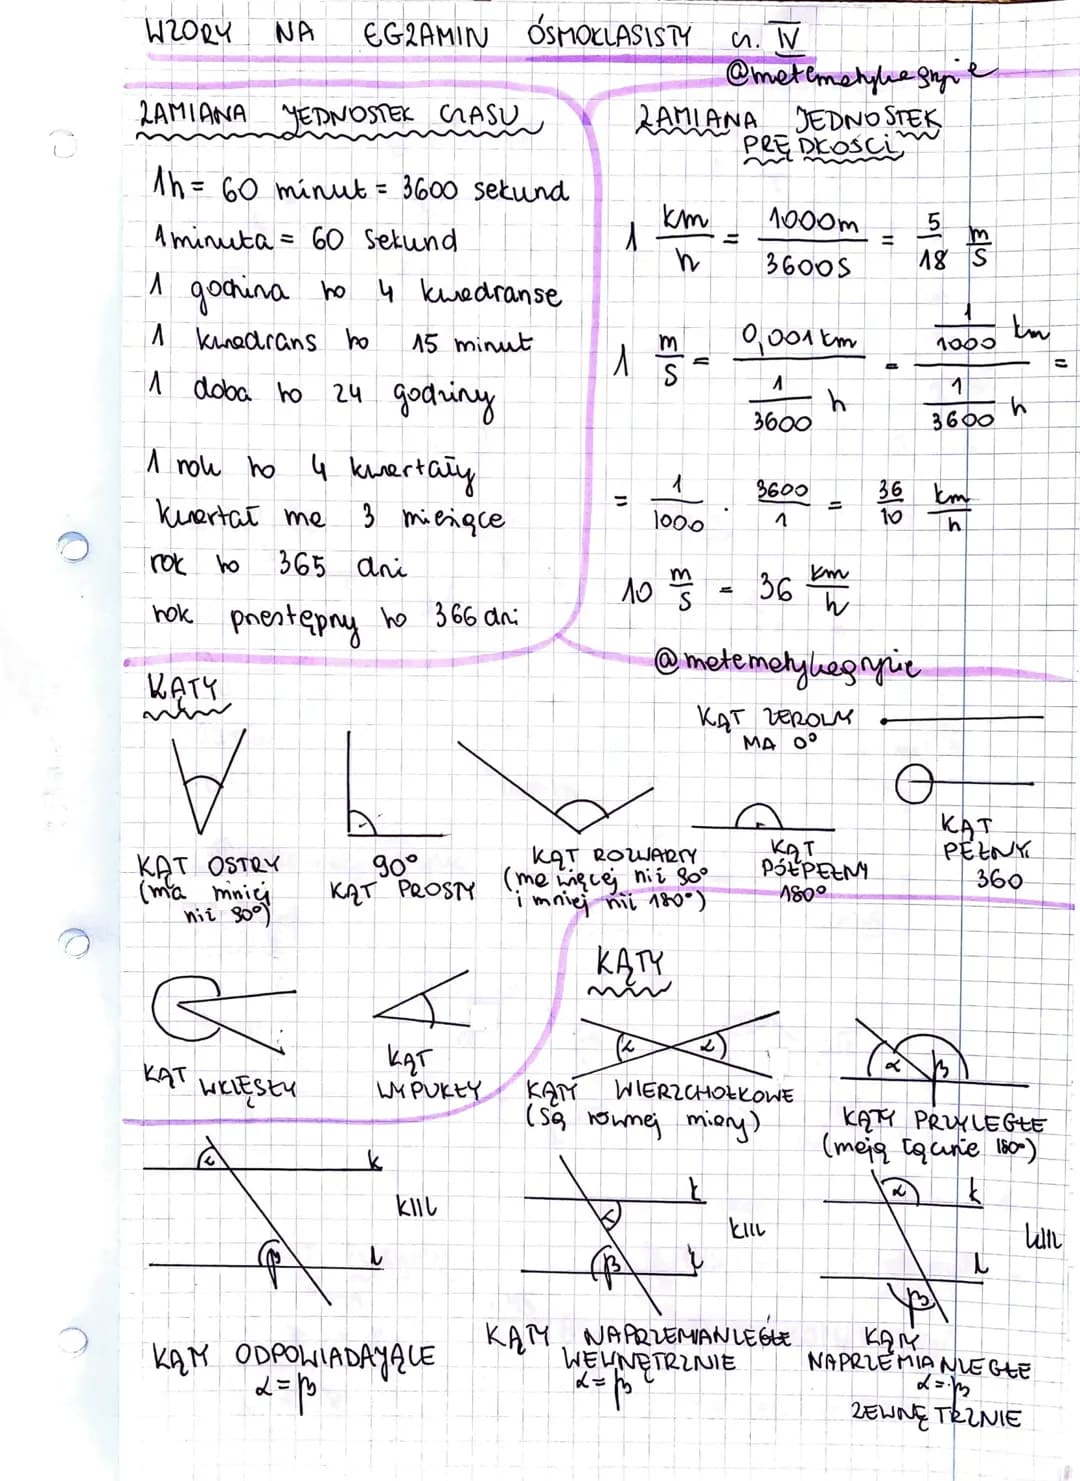 WZORY NA EGZAMIN ÓSMOKLASISTY cz. IV
@matematykagryzie
ZAMIANA JEDNOSTEK CZASU
1h = 60 minut = 3600 sekund
1 minuta = 60 sekund
1 godzina to 4 kwadranse
1 kwadrans to 15 minut
1 doba to 24 godziny
1 rok to 4 kwartały
kwartał ma 3 miesiące
rok to 365 dni
rok przestępny to 366 dni
ZAMIANA JEDNOSTEK
PRĘDKOŚCI
1 km/h = 1000m/3600s = 5/18 m/s
1 m/s = 0,001km / (1/3600 h) = (1/1000 km) / (1/3600 h) =
= 1/1000 · 3600/1 = 36/10 km/h
10 m/s = 36 km/h
@matematykagryzie
KĄTY
KĄT OSTRY
(ma mniej
niż 90°)
90°
KĄT PROSTY
KĄT ROZWARTY
(ma więcej niż 90°
i mniej niż 180°)
KĄT ZEROWY
MA 0°
KĄT
PÓŁPEŁNY
180°
KĄT
PEŁNY
360
KĄT WKLĘSŁY
KĄT
WYPUKŁY
KĄTY
α α
KĄTY WIERZCHOŁKOWE
(są równej miary)
α β
KĄTY PRZYLEGŁE
(mają łącznie 180°)
α k
k||l
β l
KĄTY ODPOWIADAJĄCE
α = β
k
α
k||l
β l
KĄTY NAPRZEMIANLEGŁE
WEWNĘTRZNIE
α = β
α k
k||l
l
β
KĄTY
NAPRZEMIANLEGŁE
α = β
ZEWNĘTRZNIE